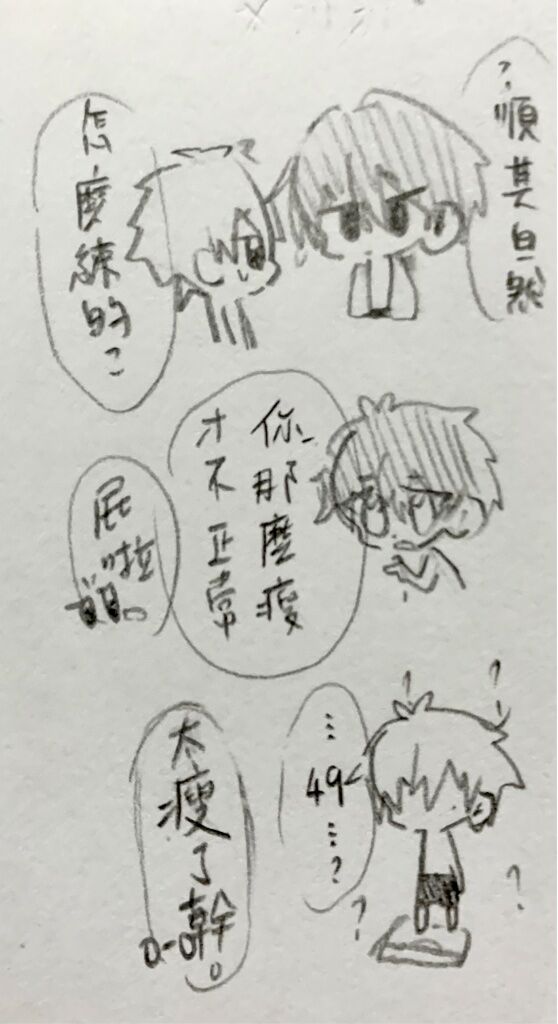 ?順其自然
怎麼練的?
你那麼瘦
才不正常
屁啦
…49…?
太瘦了幹。